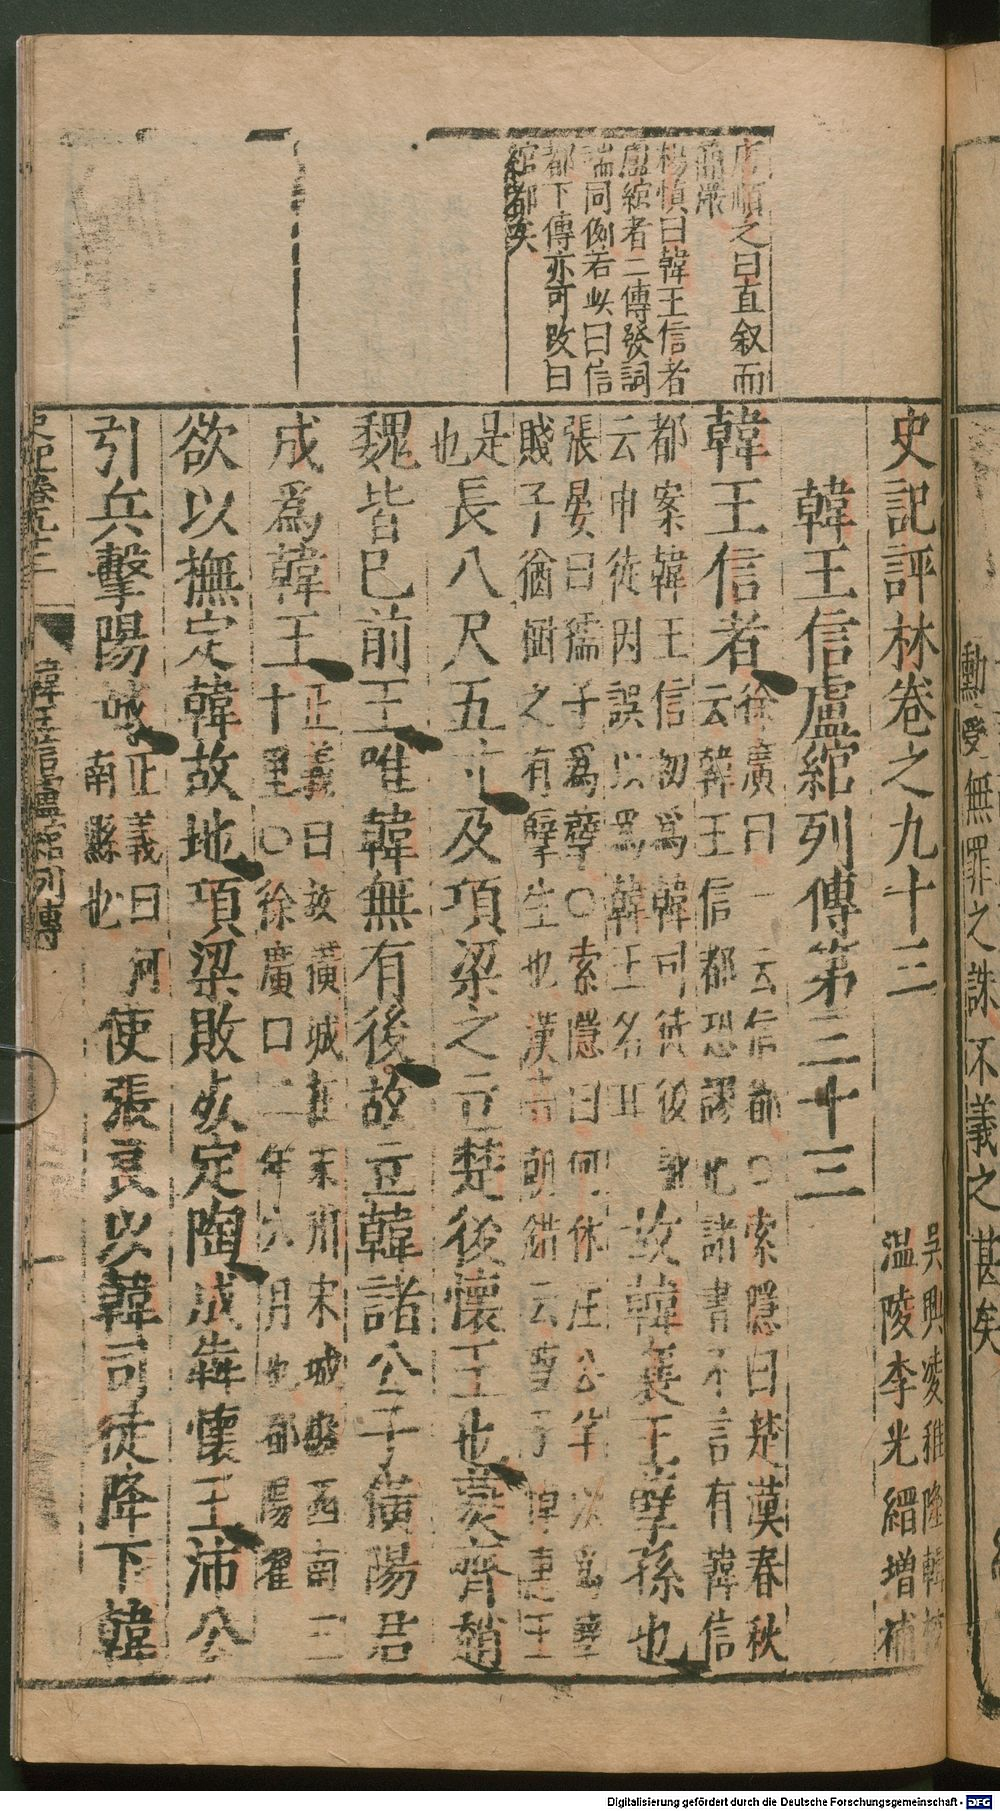 勳受無罪之誅不義之甚矣
唐順之曰直叙而
簡嚴
楊慎曰韓王信者
盧綰者二傳發詞
端同例若此曰信
都下傳亦可改曰
綰都矣
史記評林卷之九十三
吳興凌稚隆輯校
溫陵李光縉增補
韓王信盧綰列傳第三十三
韓王信者
徐廣曰一云信都○索隱曰楚漢春秋
云韓王信都恐謬也諸書不言有韓信
都案韓王信初為韓司徒後訛
云申徒因誤以為韓王名耳
故韓襄王孽孫也
張晏曰孺子為孽○索隱曰何休注公羊以為孽
賤子猶樹之有孽生也漢書朝錯云孽子悼惠王
是
也
長八尺五寸及項梁之立楚後懷王也燕齊趙
魏皆已前王唯韓無有後故立韓諸公子橫陽君
成爲韓王
正義曰故橫城在宋州宋城縣西南三
十里○徐廣曰二年六月也都陽翟
欲以撫定韓故地項梁敗死定陶成犇懷王沛公
引兵擊陽城
正義曰河
南縣也
使張良以韓司徒降下韓
史記卷九十三
韓王信盧綰列傳
一
Digitalisierung gefördert durch die Deutsche Forschungsgemeinschaft - DFG